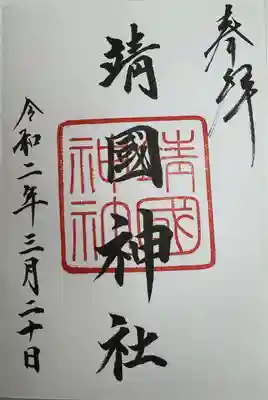 奉拝
靖國神社
令和二年三月二十日
靖國
神社